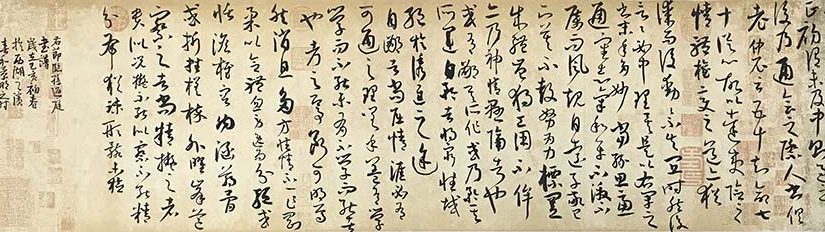 初謂未及中則過之
後乃通會之際人書俱
老仲尼云五十知命七
十從心故以達夷險之
情體權變之道亦猶
謀而後動〻不失宜時然後
言〻必中理矣是以右軍之
書末年多妙當緣思慮
通審志氣和平不激不
厲而風規自遠子敬已
下莫不鼓努為力標置
成體豈獨工用不侔
亦乃神情懸隔者也
或有鄙其所作或乃矜其
所運自矜者將窮性域
絕於誘進之途
自鄙者尚屈情涯必有
可通之理嗟乎蓋有學
學而不能未有不學而能者
也考之即事斷可明焉
然消息多方性情不一乍剛
柔以合體忽勞逸而分驅或
恬澹雍容內涵筋骨
或折挫槎枿外曜鋒芒
察之者尚精擬之者
貴似況擬不能似察不能精
分布猶疏形骸未檢
右節臨孫過庭
書譜
歲乙亥初春
於西湖之濱